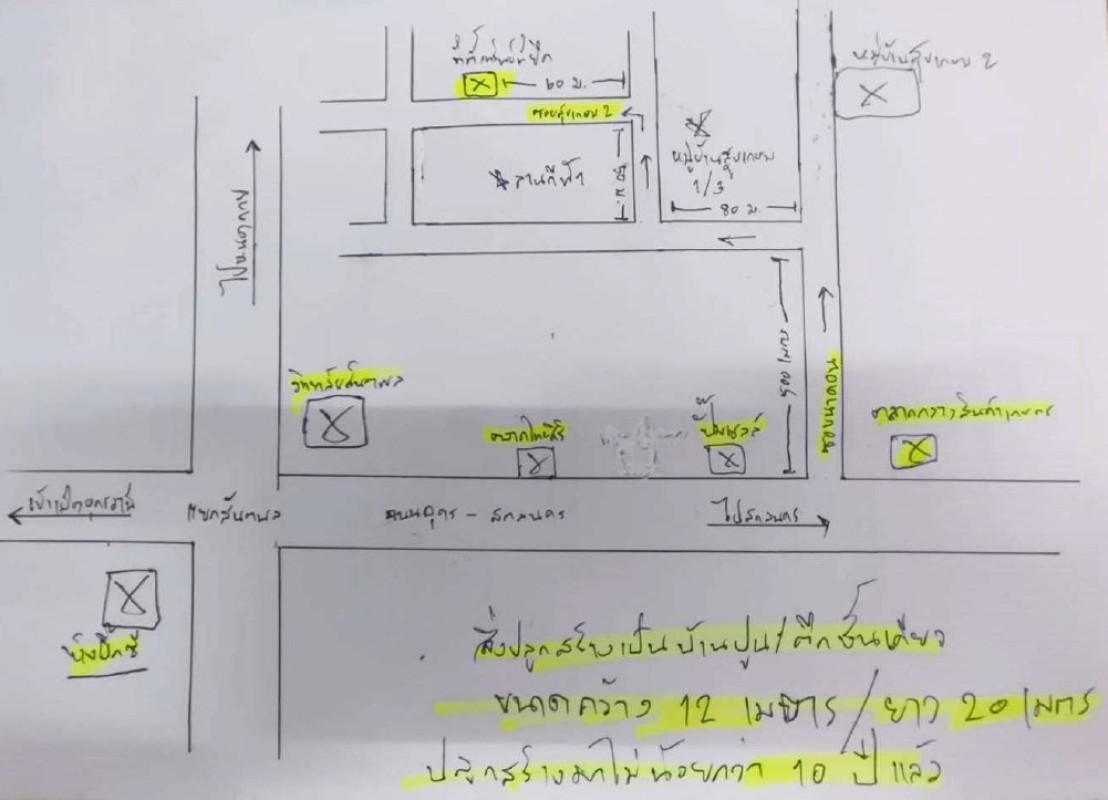 60 ม.
ซอยสุขเกษม 2
หมู่บ้านสุขเกษม 2
หมู่บ้านสุขเกษม
1/3
80 ม.
50 ม.
ลานกีฬา
500 เมตร
วิทยาลัยสันตพล
ปั๊มเชลล์
ตลาดกลางสินค้าเกษตร
แยกสันตพล
ถนนอุดร - สกลนคร
ไปสกลนคร
ห้างบิ๊กซี
สิ่งปลูกสร้างเป็นบ้านปูน/ตึกชั้นเดียว
ขนาดกว้าง 12 เมตร / ยาว 20 เมตร
ปลูกสร้างมาไม่น้อยกว่า 10 ปี แล้ว